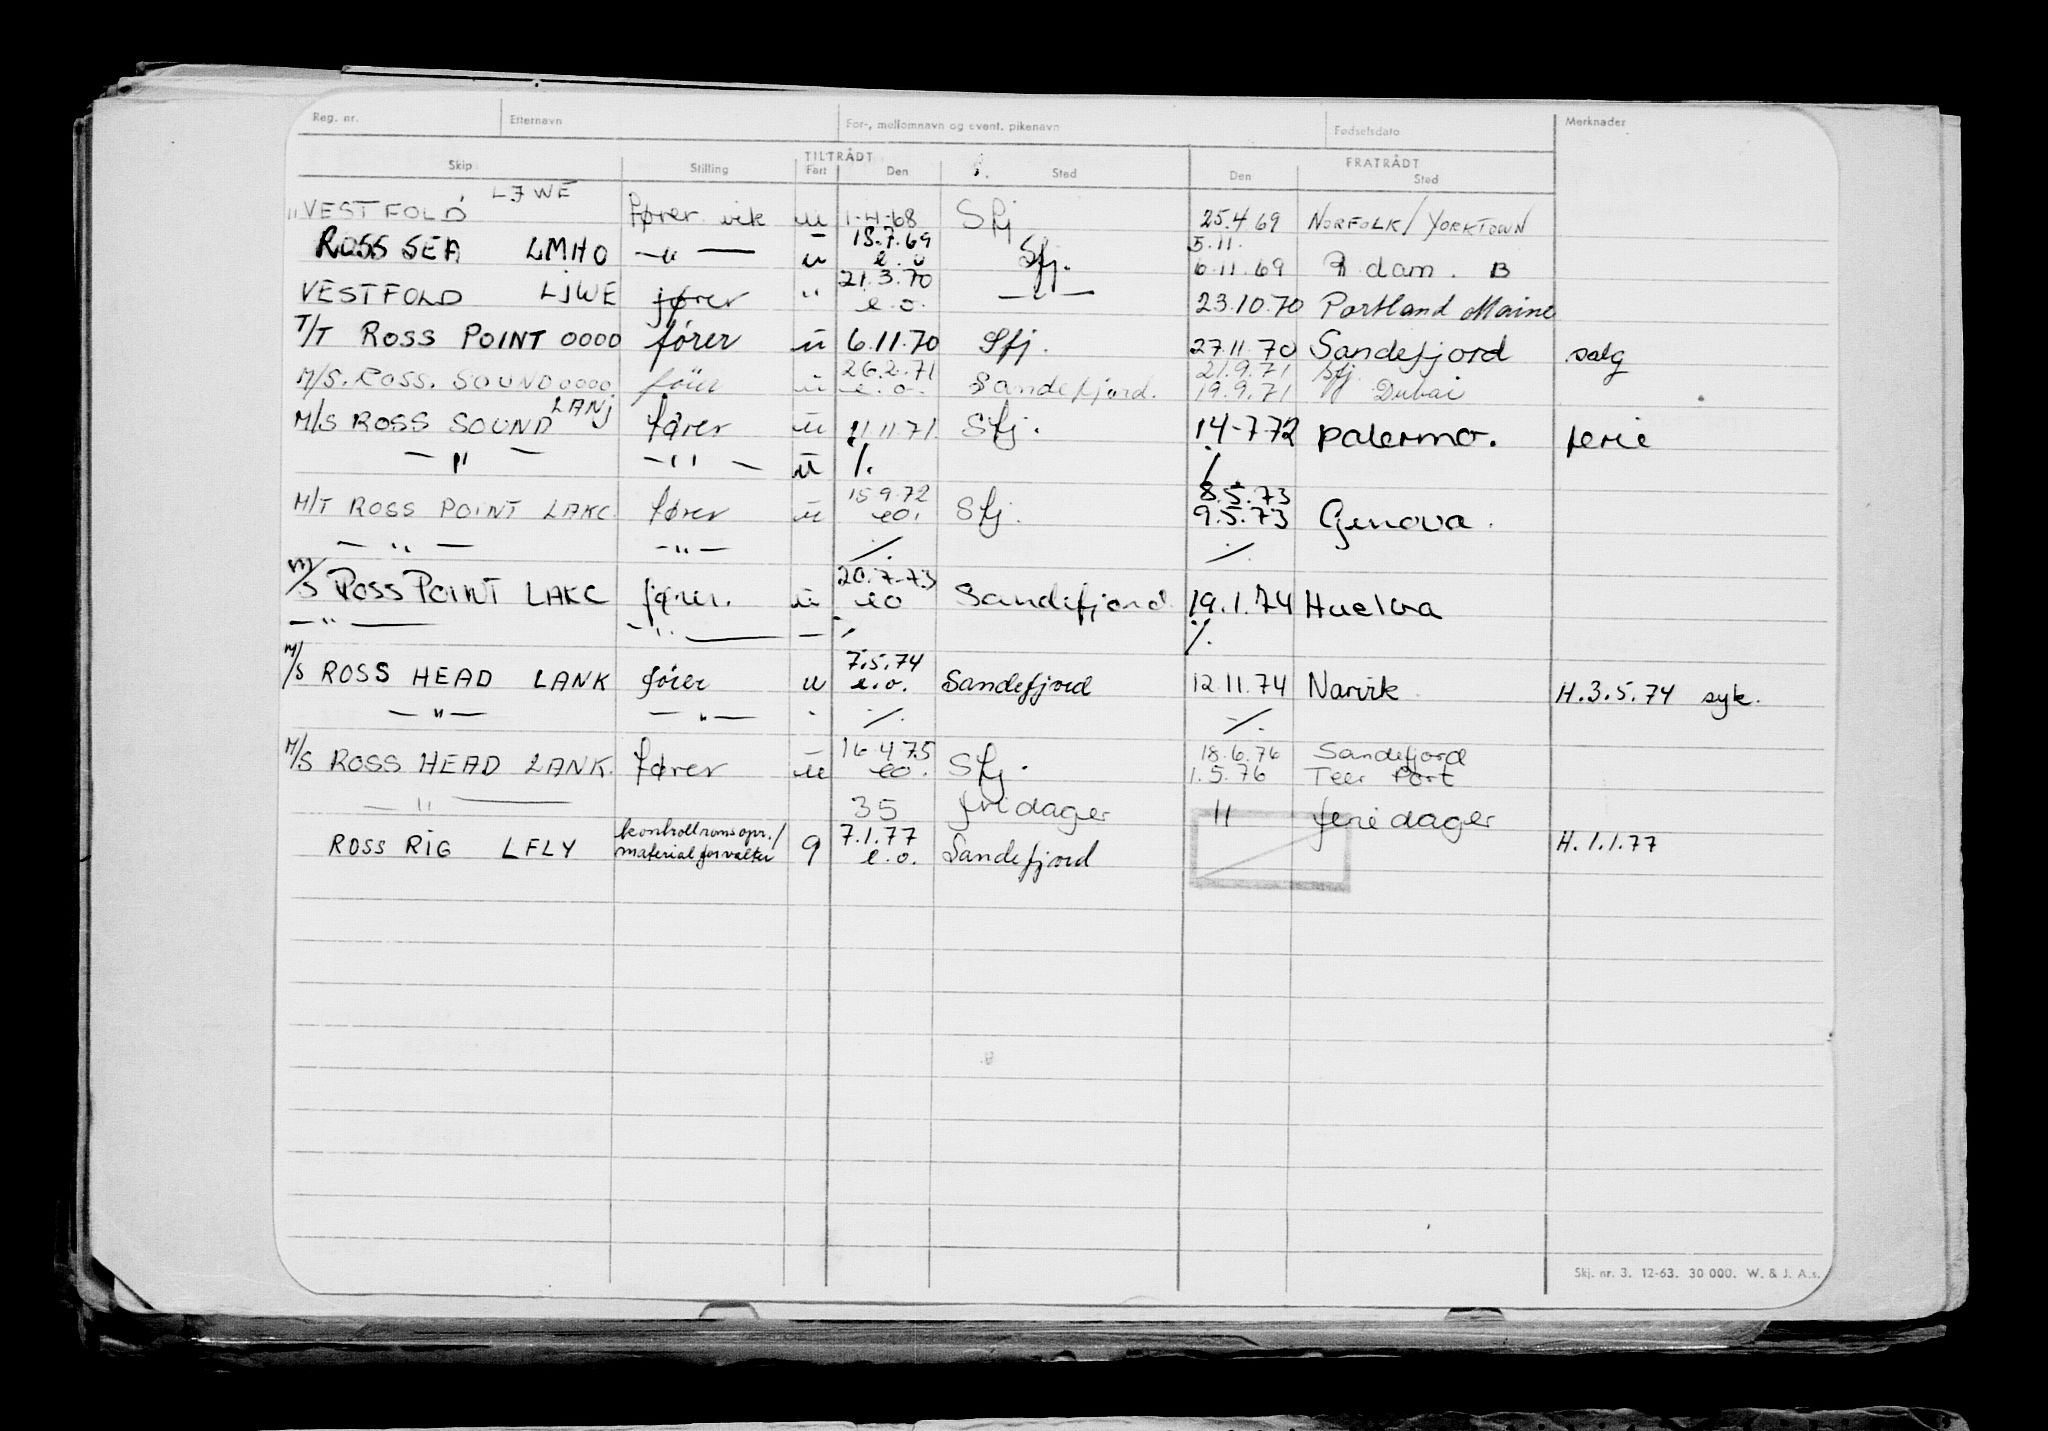 Reg. nr. Etternavn For-, mellomnavn og event. pikenavn Fødselsdato Merknader
TILTRÅDT FRATRÅDT
Skip Stilling Fart Den Sted Den Sted
LJWE
"VESTFOLD" fører vik u 1-4-68 Sfj 25.4 69 NORFOLK/YORKTOWN
18.7.69 5.11.
ROSS SEA LMHO —"— u e.o Sfj. 6.11.69 R dam. B
21.3.70
VESTFOLD LJWE fører " e.o. —"— 23.10.70 Portland Maine
T/T ROSS POINT 0000 fører u 6.11.70 Sfj. 27.11.70 Sandefjord salg
26.2.71 21.9.71 Sfj
M/S. ROSS. SOUND 0000 fører u e.o. Sandefjord. 19.9.71 Dubai
M/S ROSS SOUND LANJ fører u 11.11.71 Sfj. 14-7 72 palermo. ferie
—"— —"— u ./. ./.
15 9.72 8.5.73
M/T ROSS POINT LAKC fører u eo. Sfj. 9.5.73 Genova.
—"— —"— ./. ./.
20.7-73
M/S ROSS POINT LAKC fører. u eo Sandefjord 19.1.74 Huelva
—"— —"— — ./. ./.
7.5.74
M/S ROSS HEAD LANK fører u e.o. Sandefjord 12.11.74 Narvik H.3.5.74 syk.
—"— —"— - ./. ./.
16.4 75 18.6.76 Sandefjord
M/S ROSS HEAD LANK. fører u eo. Sfj. 1.5.76 Teer Port
—"— 35 fridager 11 feriedager
kontrollromsopr./ 7.1.77
ROSS RIG LFLY materialforvalter 9 e.o. Sandefjord H.1.1.77
Skj. nr. 3. 12-63. 30 000. W. & J. A.s.